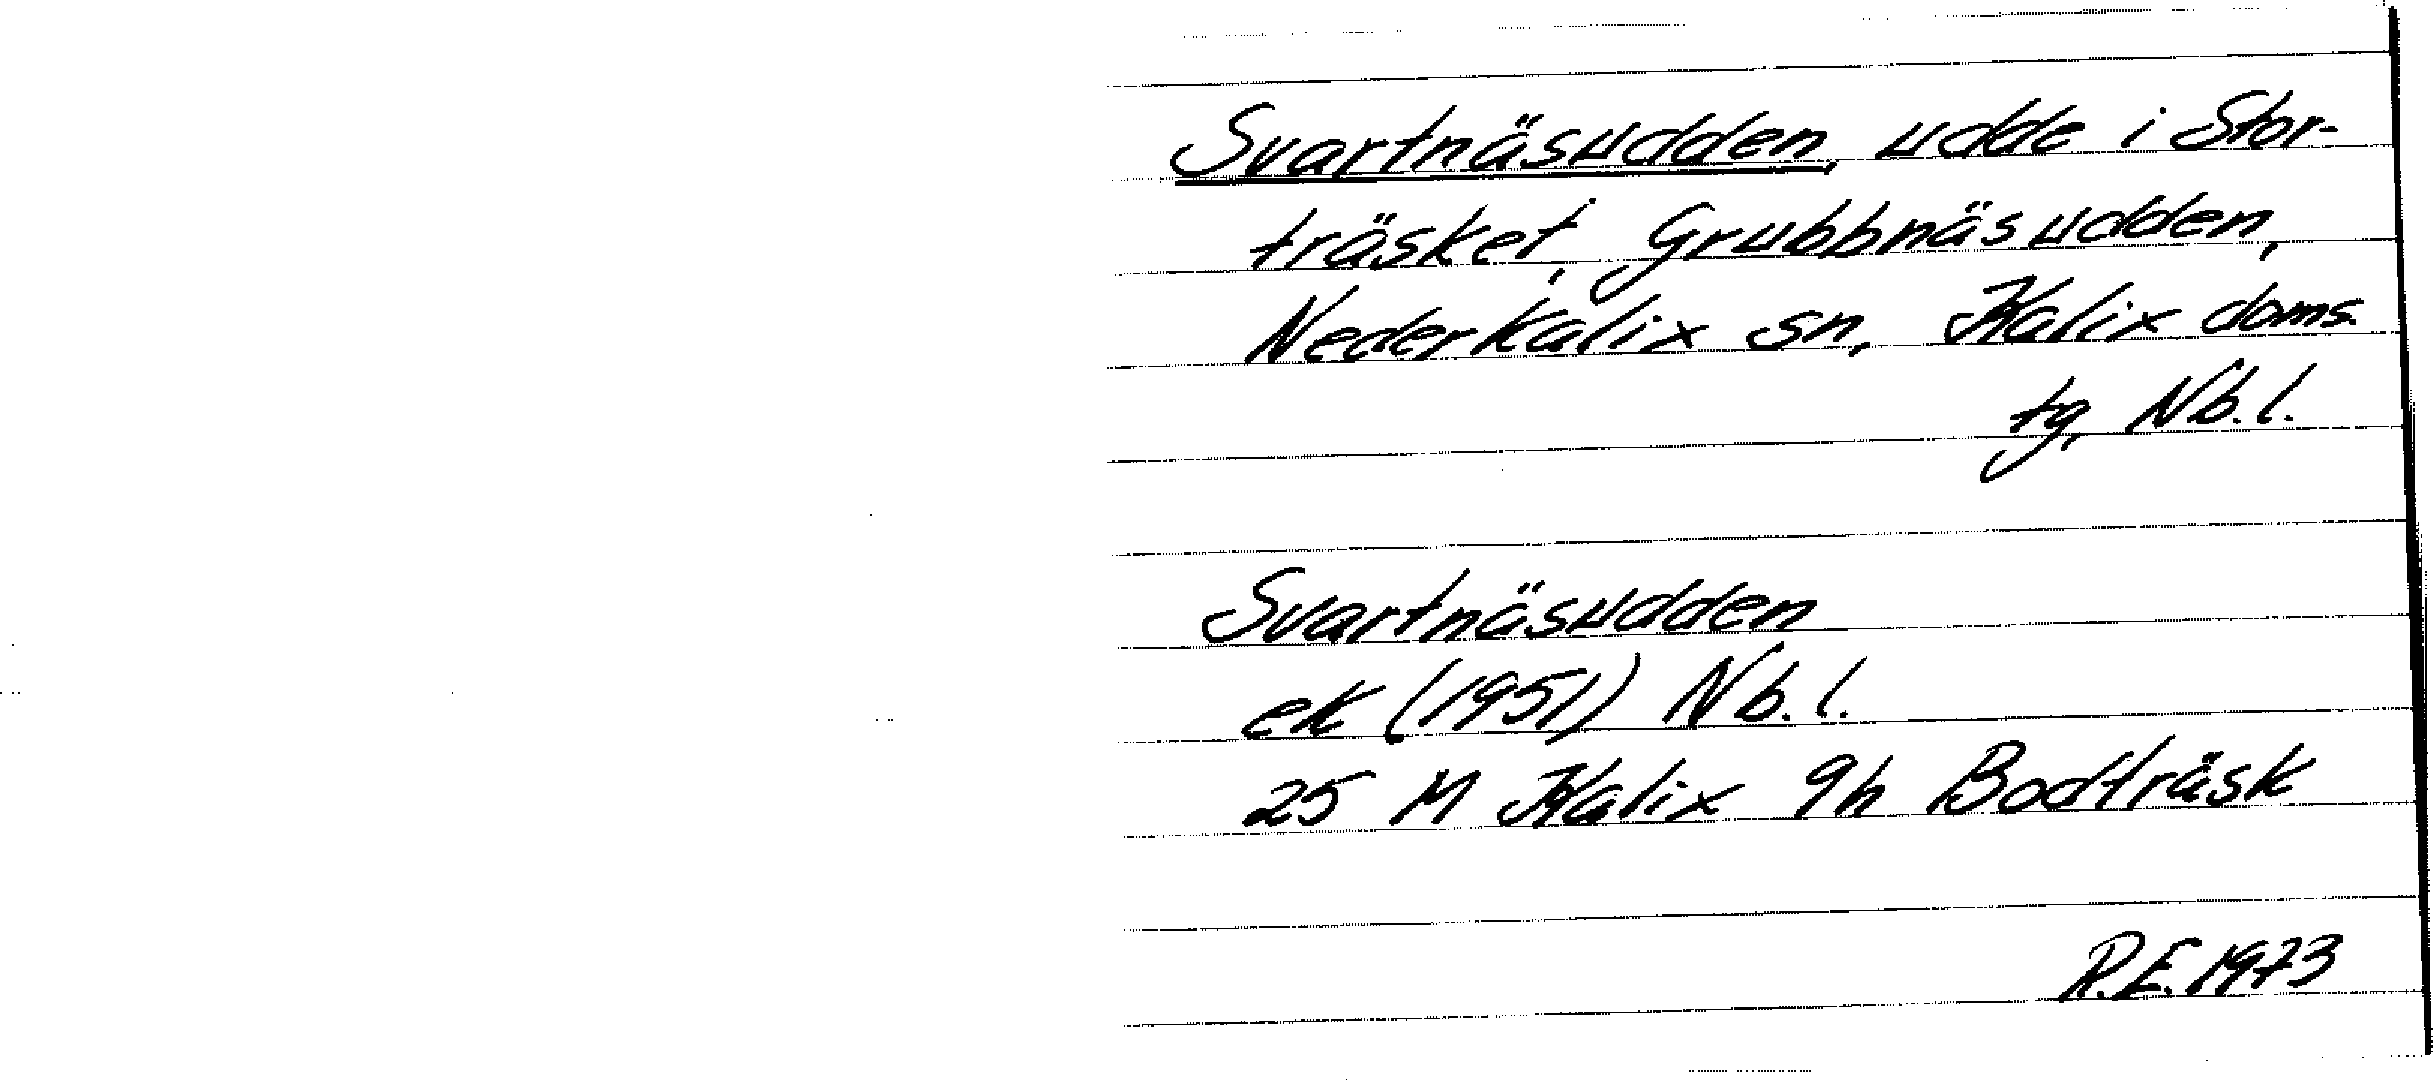 Svartnäsudden, udde i Stor-
träsket, Grubbnäsudden,
Nederkalix sn, Kalix doms.
tg, Nb.l.
Svartnäsudden
ek (1951) Nb.l.
25 M Kalix 9h Bodträsk
R.E. 1973